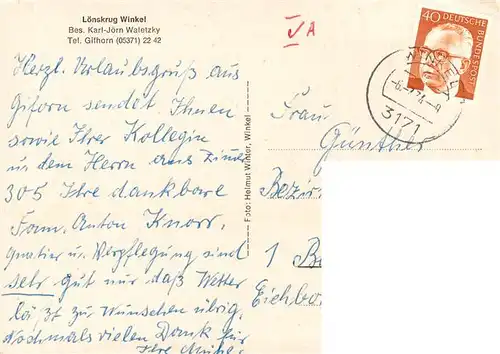 Lönskrug Winkel
Bes. Karl-Jörn Watetzky
Tel. Gifhorn (05371) 22 42
Herzl. Urlaubsgruß aus
Giforn sendet Ihnen
sowie Ihrer Kollegin
u. dem Herrn aus Zimer
305 Ihre dankbare
Fam. Anton Knorr,
Quatier u. Verpflegung sind
sehr gut nur daß Wetter
läßt zu Wünschen übrig,
Nochmals vielen Dank für
Ihre Mühe,
Foto: Helmut Winter, Winkel
JA
40 DEUTSCHE BUNDESPOST
WINKEL
3171
Frau
Günther
Bezir
1 B
Eichbo